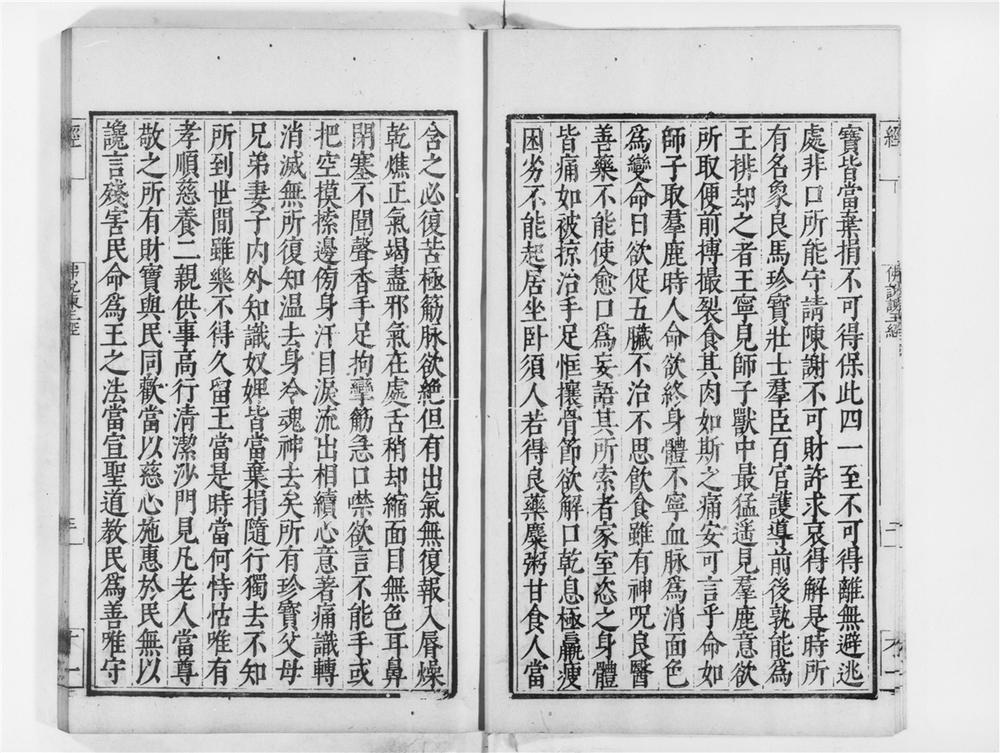 寶皆當棄捐不可得保此四一至不可得離無避逃
處非口所能守請陳謝不可財許求哀得解是時所
有名象良馬珍寶壯士羣臣百官護導前後孰能爲
王排却之者王寧見師子獸中最猛遥見羣鹿意欲
所取便前搏撮裂食其肉如斯之痛安可言乎命如
師子取羣鹿時人命欲終身體不寧血脉爲消面色
爲變命日欲促五臟不治不思飲食雖有神呪良醫
善藥不能使愈口爲妄語其所索者家室恣之身體
皆痛如被掠治手足恇攘骨節欲解口乾息極羸瘦
困劣不能起居坐卧須人若得良藥麋粥甘食人當
含之必復苦極筋脉欲絶但有出氣無復報入脣燥
乾燋正氣竭盡邪氣在處舌稍却縮面目無色耳鼻
閉塞不聞聲香手足拘攣筋急口噤欲言不能手或
把空摸捺邊傍身汗目淚流出相續心意著痛識轉
消滅無所復知温去身冷魂神去矣所有珍寶父母
兄弟妻子内外知識奴婢皆當棄捐隨行獨去不知
所到世間雖樂不得久留王當是時當何恃怙唯有
孝順慈養二親供事高行清潔沙門見凡老人當尊
敬之所有財寶與民同歡當以慈心施惠於民無以
讒言殘害民命爲王之法當宣聖道教民爲善唯守